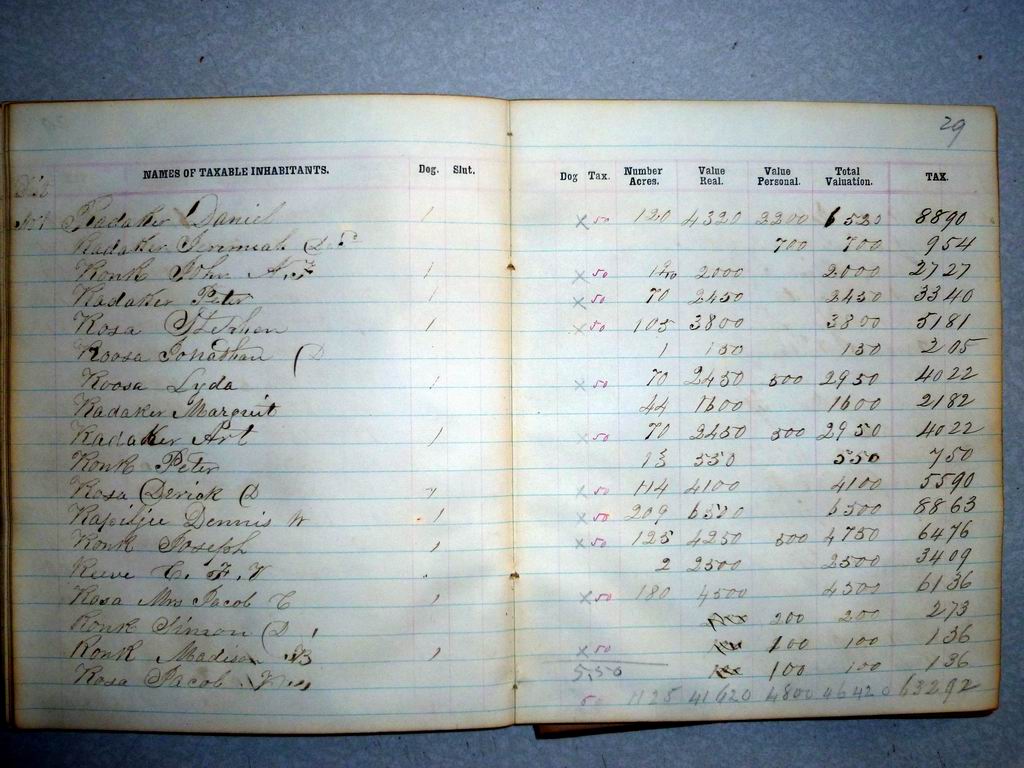 29
NAMES OF TAXABLE INHABITANTS. Dog. Slut. Dog Tax. Number Acres. Value Real. Value Personal. Total Valuation. TAX.
Radaker Daniel 1 x 50 120 4320 2200 6520 8890
Radaker Jeremiah 700 700 954
Ronk John 1 x 50 2000 2000 2727
Radaker Peter 1 x 50 70 2450 2450 3340
Rosa Stephen 1 x 50 105 3800 3800 5181
Roosa Jonathan D 1 150 150 205
Roosa Lyda 1 x 50 70 2450 500 2950 4022
Radaker Margrit 44 1600 1600 2182
Radaker Art 1 x 50 70 2450 500 2950 4022
Ronk Peter 550 550 750
Rosa Derick D 1 x 50 114 4100 4100 5590
Rapelje Dennis W 1 x 50 209 6500 6500 8863
Ronk Joseph 1 x 50 125 4250 500 4750 6476
Reeve C. F. V 2 2500 2500 3409
Rosa Mrs Jacob C 1 x 50 180 4500 4500 6136
Ronk Simon D 200 200 273
Ronk Madison 1 x 50 100 100 136
Rosa Jacob 5,50 100 100 136
50 1125 41620 4800 46420 63292